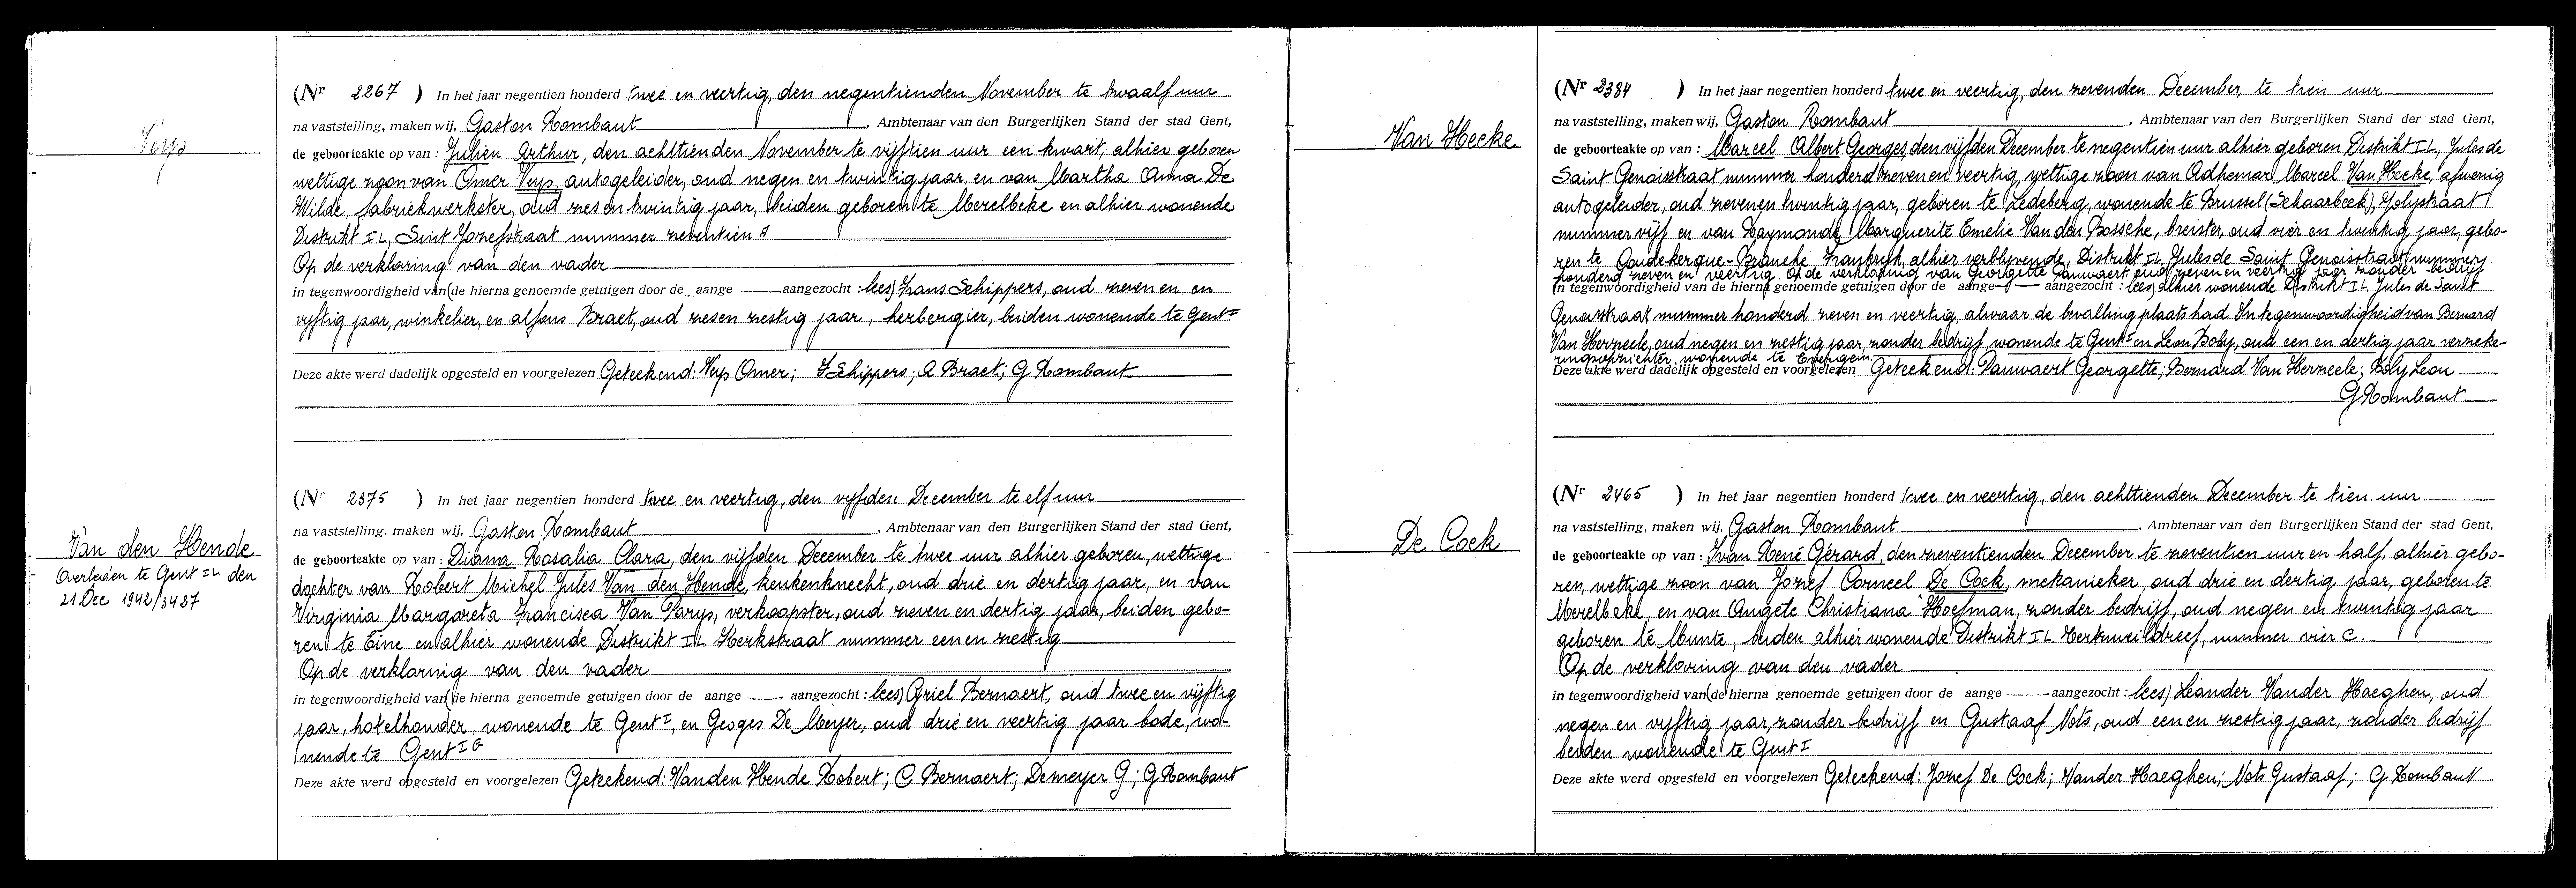 Veys
(Nr 2267 ) In het jaar negentien honderd twee en veertig, den negentienden November te twaalf uur
na vaststelling, maken wij, Gaston Rombaut, Ambtenaar van den Burgerlijken Stand der stad Gent,
de geboorteakte op van : Julien Arthur, den achttienden November te vijftien uur een kwart, alhier geboren
wettige zoon van Omer Veys, autogeleider, oud negen en twintig jaar, en van Martha Anna De
Wilde, fabriekwerkster, oud zes en twintig jaar, beiden geboren te Merelbeke en alhier wonende
Distrikt IL, Sint Jozefstraat nummer zeventien A
Op de verklaring van den vader
in tegenwoordigheid van (de hierna genoemde getuigen door de aange aangezocht : lees) Frans Schippers, oud zeven en en
vyftig jaar, winkelier, en Alfons Braet, oud zes en zestig jaar, herbergier, beiden wonende te Gent I
Deze akte werd dadelijk opgesteld en voorgelezen Geteekend: Veys Omer; F Schippers; A Braet; G Rombaut
Van den Hende
Overleden te Gent IL den
21 Dec 1942/3487
(Nr 2375 ) In het jaar negentien honderd twee en veertig, den vyfden December te elf uur
na vaststelling, maken wij, Gaston Rombaut, Ambtenaar van den Burgerlijken Stand der stad Gent,
de geboorteakte op van : Diana Rosalia Clara, den vijfden December te twee uur alhier geboren, wettige
dochter van Robert Michel Jules Van den Hende, keukenknecht, oud drie en dertig jaar, en van
Virginia Margareta Francisca Van Parys, verkoopster, oud zeven en dertig jaar, beiden gebo-
ren te Eine en alhier wonende Distrikt IL Kerkstraat nummer een en zestig
Op de verklaring van den vader
in tegenwoordigheid van (de hierna genoemde getuigen door de aange aangezocht : lees) Criel Bernaert, oud twee en vijftig
jaar, hotelhouder, wonende te Gent I, en Geoges De Meyer, oud drie en veertig jaar bode, wo-
nende te Gent I G
Deze akte werd opgesteld en voorgelezen Geteekend: Vanden Hende Robert; C Bernaert; Demeyer G; G Rombaut
Van Hecke
(Nr 2384 ) In het jaar negentien honderd twee en veertig, den zevenden December, te tien uur
na vaststelling, maken wij, Gaston Rombaut, Ambtenaar van den Burgerlijken Stand der stad Gent,
de geboorteakte op van : Marcel Albert Georges, den vijfden December te negentien uur alhier geboren Distrikt IL, Jules de
Saint Genoisstraat nummer honderd zeven en veertig, wettige zoon van Adhemar Marcel Van Hecke, afwezig
autogeleider, oud zeven en twintig jaar, geboren te Ledeberg, wonende te Brussel (Schaarbeek), Jolystraat
nummer vijf en van Raymonde Marguerite Emelie Van den Bossche, breister, oud vier en twintig jaar, gebo-
ren te Coudekerque-Branche Frankryk, alhier verblyvende, Distrikt IL Jules de Saint Genoisstraat nummer
honderd zeven en veertig. Op de verklaring van Georgette Pauwaert oud zeven en veertig jaar zonder bedrijf
in tegenwoordigheid van de hierna genoemde getuigen door de aange aangezocht : lees) alhier wonende Distrikt IL Jules de Saint
Genoisstraat nummer honderd zeven en veertig, alwaar de bevalling plaats had. In tegenwoordigheid van Bernard
Van Herzeele, oud negen en zestig jaar, zonder bedrijf, wonende te Gent I en Leon Boly, oud een en dertig jaar verzeke-
ringsopzichter, wonende te Evergem.
Deze akte werd dadelijk opgesteld en voorgelezen Geteekend: Pauwaert Georgette; Bernard Van Herzeele; Boly Leon
G Rombaut
De Cock
(Nr 2465 ) In het jaar negentien honderd twee en veertig, den achttienden December te tien uur
na vaststelling, maken wij, Gaston Rombaut, Ambtenaar van den Burgerlijken Stand der stad Gent,
de geboorteakte op van : Ivan René Gérard, den zeventienden December te zeventien uur en half, alhier gebo-
ren, wettige zoon van Jozef Corneel De Cock, mekanieker, oud drie en dertig jaar, geboren te
Merelbeke, en van Angèle Christiana Hoefman, zonder bedrijf, oud negen en twintig jaar
geboren te Munte, beiden alhier wonende Distrikt IL nummer vier C.
Op de verklaring van den vader
in tegenwoordigheid van (de hierna genoemde getuigen door de aange aangezocht : lees) Leander Vander Haeghen, oud
negen en vyftig jaar, zonder bedrijf en Gustaaf Nots, oud een en zestig jaar, zonder bedrijf
beiden wonende te Gent I
Deze akte werd opgesteld en voorgelezen Geteekend: Jozef De Cock; Vander Haeghen; Nots Gustaaf; G Rombaut